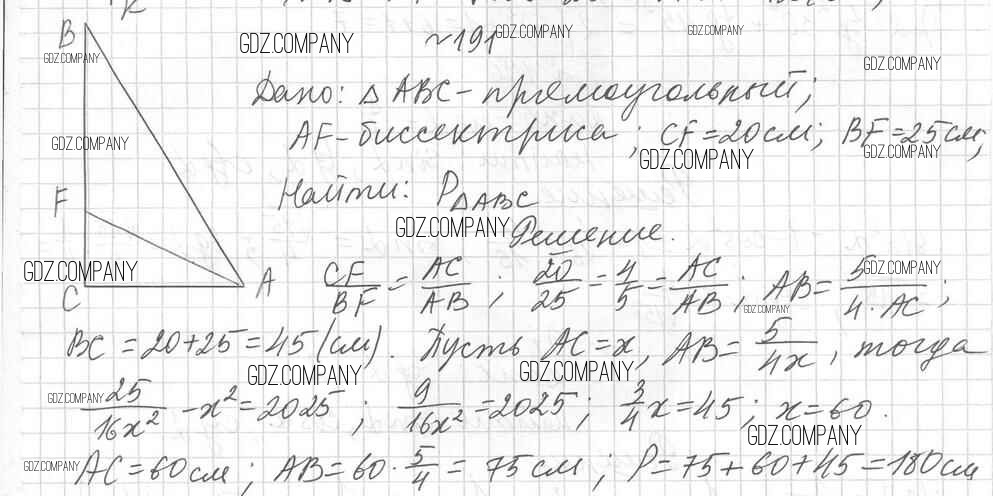 B
GDZ.COMPANY ~191 GDZ.COMPANY GDZ.COMPANY
GDZ.COMPANY GDZ.COMPANY
Дано: △ ABC - прямоугольный;
GDZ.COMPANY AF - биссектриса; CF = 20 см; BF = 25 см;
GDZ.COMPANY GDZ.COMPANY
Найти: P△ABC
F
GDZ.COMPANY Решение.
GDZ.COMPANY C A CF/BF = AC/AB; 20/25 = 4/5 = AC/AB; AB = 5/4·AC; GDZ.COMPANY
GDZ.COMPANY
BC = 20+25 = 45 (см). Пусть AC = x, AB = 5/4x, тогда
GDZ.COMPANY GDZ.COMPANY
GDZ.COMPANY 25/16x² - x² = 2025; 9/16x² = 2025; 3/4 x = 45; x = 60.
GDZ.COMPANY
GDZ.COMPANY AC = 60 см; AB = 60 · 5/4 = 75 см; P = 75 + 60 + 45 = 180 см